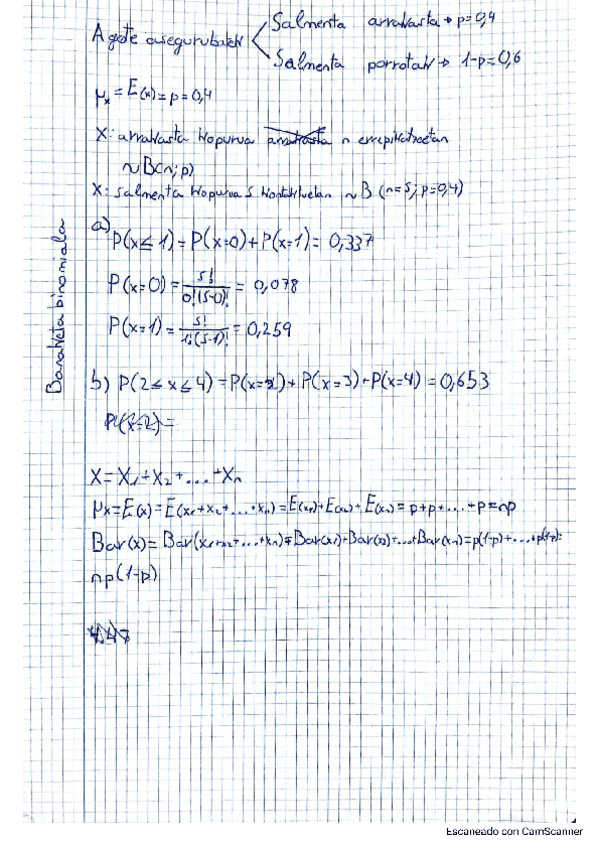 Salmenta arrakasta → p=0,4
Agente asegurubatek
Salmenta porrotak → 1-p=0,6
μx = E(x) = p = 0,4
X: arrakasta kopurua arrakasta n errepikatzetan
~B(n; p)
X: salmenta kopurua 5 kontaktuetan ~ B (n=5; p=0,4)
Banaketa binomiala
a)
P(x≤1) = P(x=0) + P(x=1) = 0,337
P(x=0) = 5!/0!(5-0)! = 0,078
P(x=1) = 5!/1!(5-1)! = 0,259
b) P(2≤x≤4) = P(x=2) + P(x=3) + P(x=4) = 0,653
P(x=2) =
X = X1 + X2 + ... + Xn
μx = E(x) = E(x1+x2+...+xn) = E(x1) + E(x2) + E(xn) = p+p+...+p = np
Bar(x) = Bar(x1+x2+...+xn) = Bar(x1) + Bar(x2) + ... + Bar(xn) = p(1-p) + ... + p(1-p) =
np(1-p)
Escaneado con CamScanner